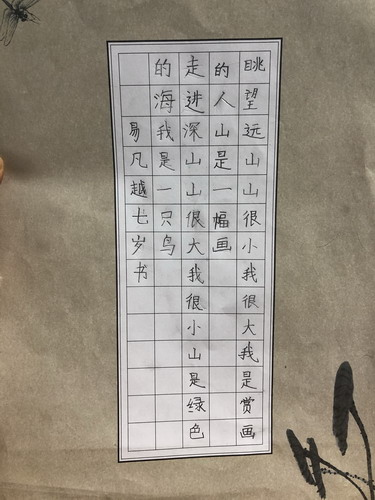 眺望远山山很小我很大我是赏画
的人山是一幅画
走进深山山很大我很小山是绿色
的海我是一只鸟
易凡越七岁书